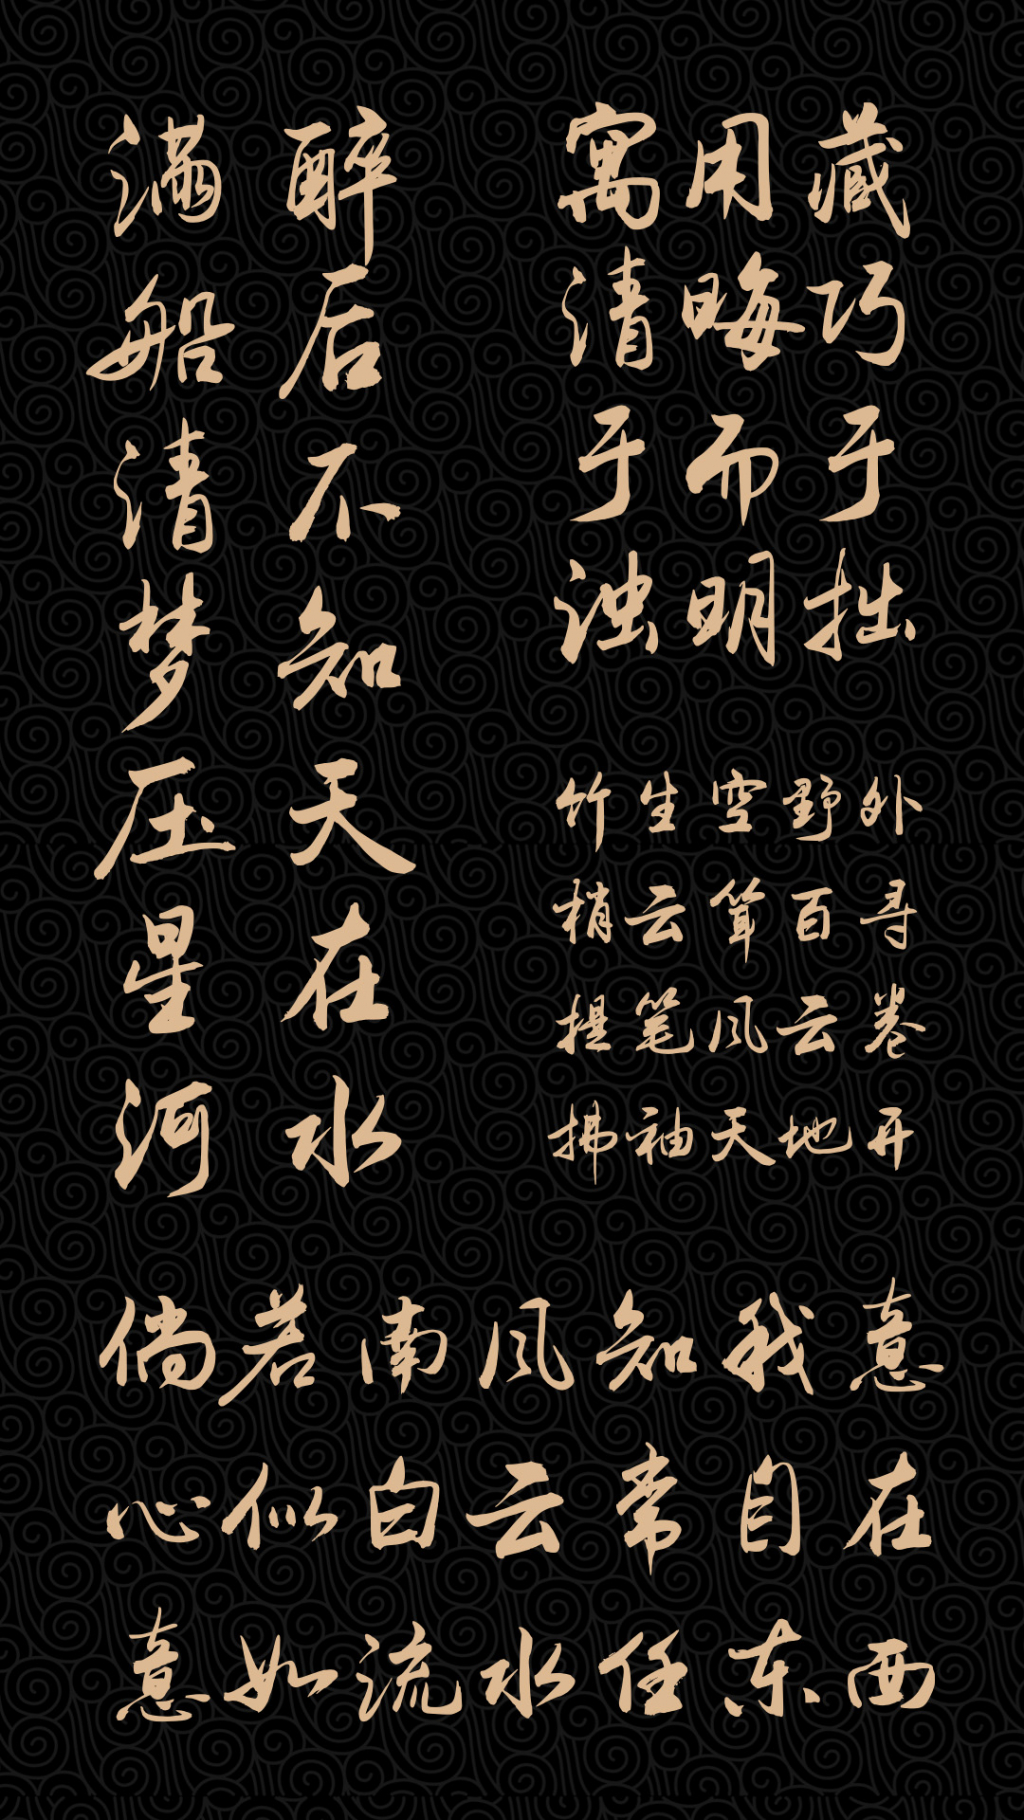 藏巧于拙
用晦而明
寓清于浊
醉后不知天在水
满船清梦压星河
竹生空野外
梢云耸百寻
提笔风云卷
拂袖天地开
倘若南风知我意
心似白云常自在
意如流水任东西